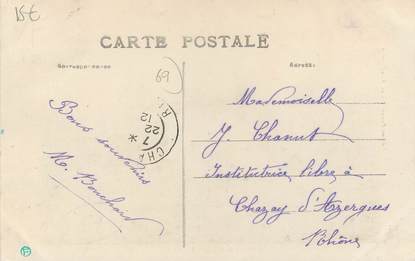 15€
CARTE POSTALE
69
Correspondance
Adresse:
Bons souvenirs
M. Bouchard
7 *
22
12
CHA
Mademoiselle
J. Chanut
Institutrice libre à
Chazay d'Azergues
Rhône